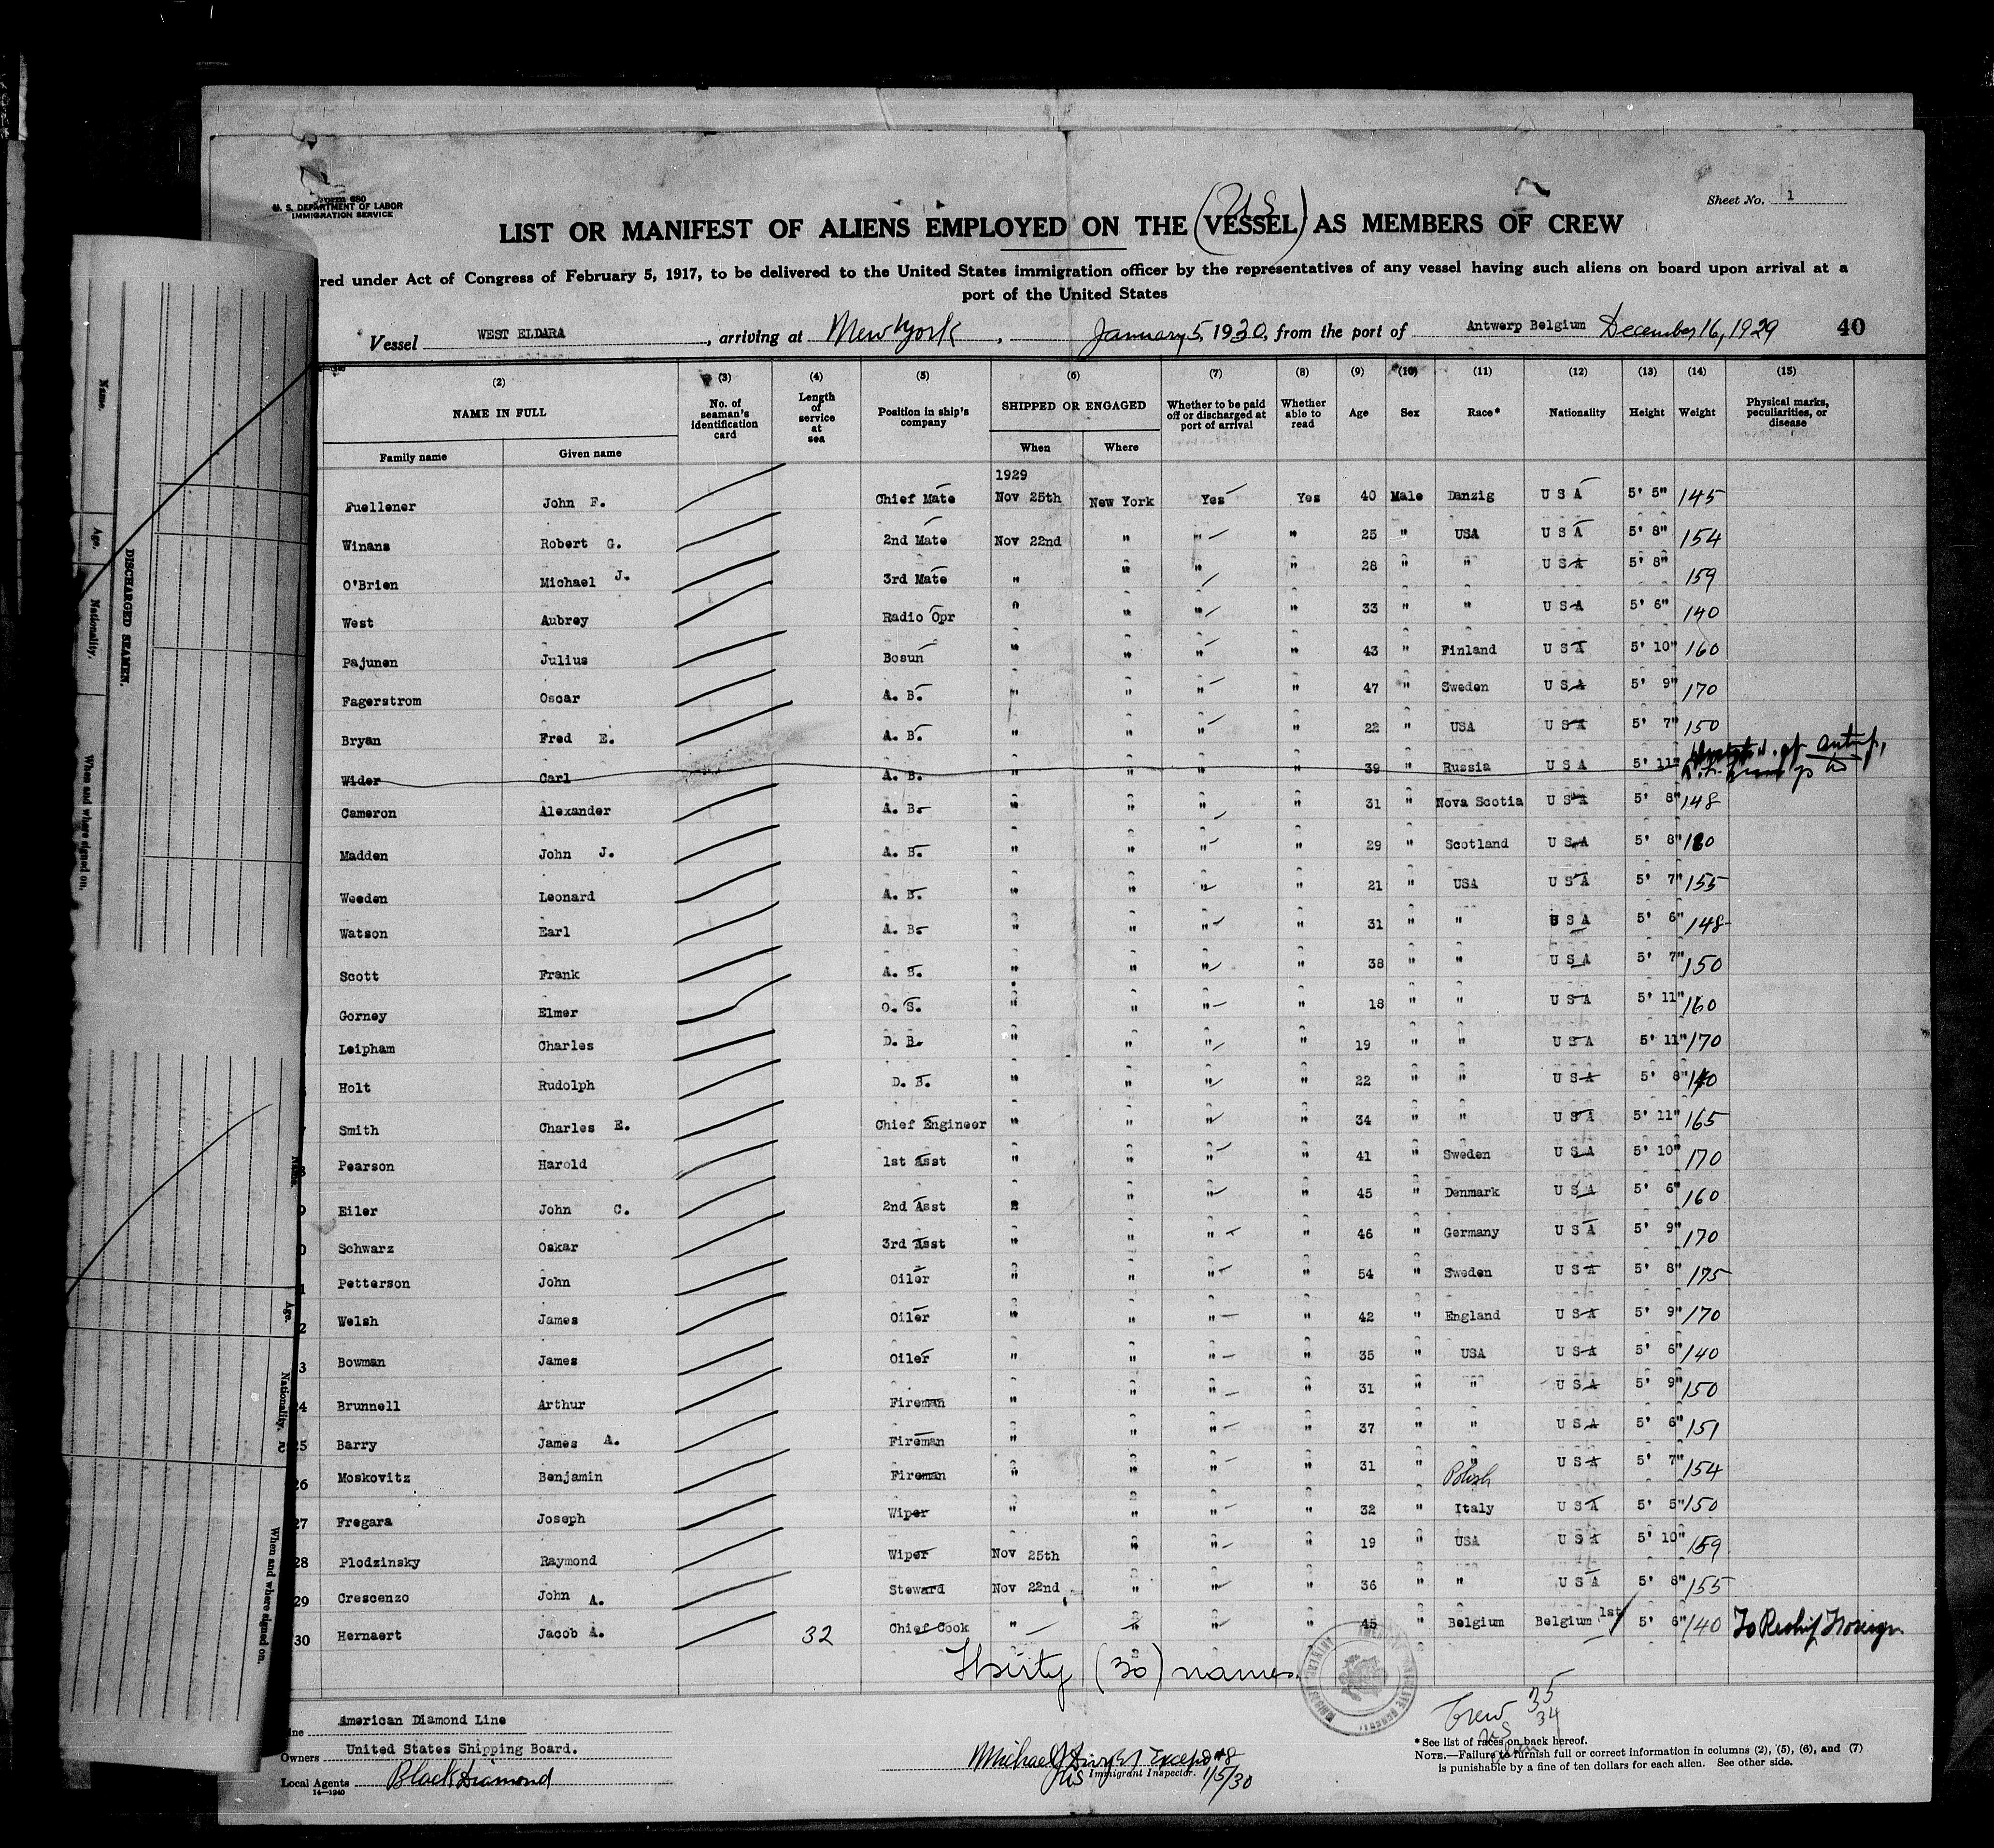 Form 680
U. S. DEPARTMENT OF LABOR
IMMIGRATION SERVICE
Sheet No. 1
(US)
LIST OR MANIFEST OF ALIENS EMPLOYED ON THE (VESSEL) AS MEMBERS OF CREW
red under Act of Congress of February 5, 1917, to be delivered to the United States immigration officer by the representatives of any vessel having such aliens on board upon arrival at a
port of the United States
Vessel WEST ELDARA, arriving at New York, January 5, 1930, from the port of Antwerp Belgium December 16, 1929 40
(2) (3) (4) (5) (6) (7) (8) (9) (10) (11) (12) (13) (14) (15)
NAME IN FULL
Family name Given name
No. of seaman's identification card
Length of service at sea
Position in ship's company
SHIPPED OR ENGAGED
When Where
Whether to be paid off or discharged at port of arrival
Whether able to read
Age Sex Race* Nationality Height Weight
Physical marks, peculiarities, or disease
1929
Fuellener John F. Chief Mate Nov 25th New York Yes Yes 40 Male Danzig U S A 5' 5" 145
Winans Robert G. 2nd Mate Nov 22nd " " " 25 " USA U S A 5' 8" 154
O'Brien Michael J. 3rd Mate " " " " 28 " " U S A 5' 8" 159
West Aubrey Radio Opr " " " " 33 " " U S A 5' 6" 140
Pajunen Julius Bosun " " " " 43 " Finland U S A 5' 10" 160
Fagerstrom Oscar A. B. " " " " 47 " Sweden U S A 5' 9" 170
Bryan Fred E. A. B. " " " " 22 " USA U S A 5' 7" 150
Wider Carl A. B. " " " " 39 " Russia U S A 5' 11"
Cameron Alexander A. B. " " " " 31 " Nova Scotia U S A 5' 8" 148
Madden John J. A. B. " " " " 29 " Scotland U S A 5' 8" 180
Weeden Leonard A. B. " " " " 21 " USA U S A 5' 7" 155
Watson Earl A. B. " " " " 31 " " U S A 5' 6" 148
Scott Frank A. B. " " " " 38 " " U S A 5' 7" 150
Gorney Elmer O. S. " " " " 18 " " U S A 5' 11" 160
Leipham Charles D. B. " " " " 19 " " U S A 5' 11" 170
Holt Rudolph D. B. " " " " 22 " " U S A 5' 8" 140
Smith Charles E. Chief Engineer " " " " 34 " " U S A 5' 11" 165
Pearson Harold 1st Asst " " " " 41 " Sweden U S A 5' 10" 170
9 Eiler John C. 2nd Asst " " " " 45 " Denmark U S A 5' 6" 160
0 Schwarz Oskar 3rd Asst " " " " 46 " Germany U S A 5' 9" 170
1 Petterson John Oiler " " " " 54 " Sweden U S A 5' 8" 175
2 Welsh James Oiler " " " " 42 " England U S A 5' 9" 170
3 Bowman James Oiler " " " " 35 " USA U S A 5' 6" 140
24 Brunnell Arthur Fireman " " " " 31 " " U S A 5' 9" 150
25 Barry James A. Fireman " " " " 37 " " U S A 5' 6" 151
26 Moskovitz Benjamin Fireman " " " " 31 " " Polish U S A 5' 7" 154
27 Fregara Joseph Wiper " " " " 32 " Italy U S A 5' 5" 150
28 Plodzinsky Raymond Wiper Nov 25th " " " 19 " USA U S A 5' 10" 159
29 Crescenzo John A. Steward Nov 22nd " " " 36 " " U S A 5' 8" 155
30 Hernaert Jacob A. 32 Chief Cook " " " " 45 " Belgium Belgium 1st 5' 6" 140 To Reship Foreign
Thirty (30) names.
Crew 35
34
US
ine American Diamond Line
Owners United States Shipping Board.
Local Agents Black Diamond
14—1240
Except #8
US Immigrant Inspector. 1/5/30
* See list of races on back hereof.
NOTE.—Failure to furnish full or correct information in columns (2), (5), (6), and (7)
is punishable by a fine of ten dollars for each alien. See other side.
DISCHARGED SEAMEN.
Name.
Age.
Nationality.
When and where signed on.
Name.
Age.
Nationality.
When and where signed on.